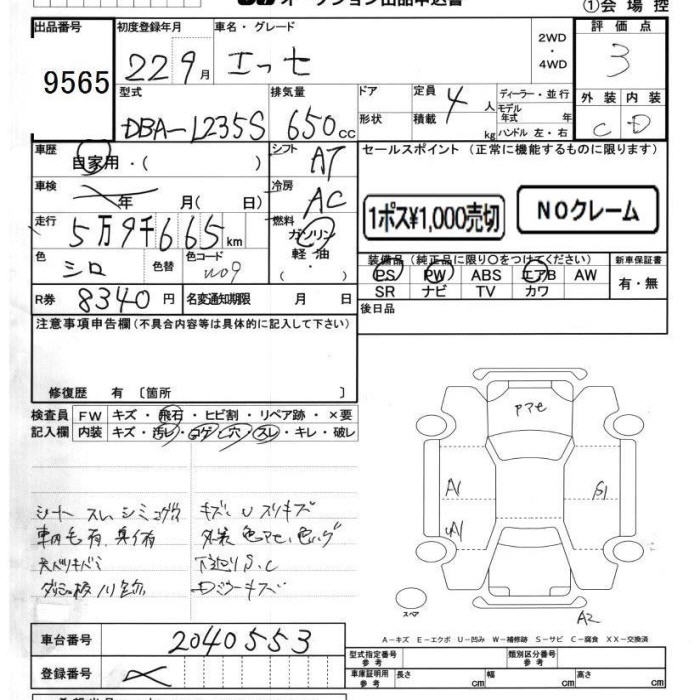 オークション出品申込書
①会場控
出品番号
9565
初度登録年月
22 9月
車名・グレード
エッセ
2WD
・
4WD
評価点
3
型式
DBA-L235S
排気量
650cc
ドア
形状
定員
4人
積載
kg
ディーラー・並行
モデル年式 年
ハンドル 左・右
外装 内装
C D
車歴
自家用・( )
シフト
AT
セールスポイント (正常に機能するものに限ります)
車検
年 月( 日)
冷房
AC
1ポス¥1,000売切
NOクレーム
走行
5万9千665km
燃料
ガソリン
軽油
( ・ )
色
シロ
色替
色コード
W09
装備品 (純正品に限り○をつけてください)
PS PW ABS エアB AW
SR ナビ TV カワ
新車保証書
有・無
R券
8340円
名変通知期限 月 日
後日品
注意事項申告欄(不具合内容等は具体的に記入して下さい)
修復歴 有 〔箇所 〕
検査員記入欄
FW キズ・飛石・ヒビ割・リペア跡・×要
内装 キズ・汚レ・コゲ・穴・スレ・キレ・破レ
シート スレ シミ コゲ穴
キズ、U スリキズ
車内毛有、臭イ有
外装 色アセ、色ハゲ
天バリキバミ
下廻りS.C
Dミラーキズ
アマセ
A1
UA1
G1
A2
スペア
A-キズ E-エクボ U-凹み W-補修跡 S-サビ C-腐食 XX-交換済
車台番号
2040553
登録番号
型式指定番号 参考
類別区分番号 参考
車庫証明用 参考
長さ cm
幅 cm
高さ cm